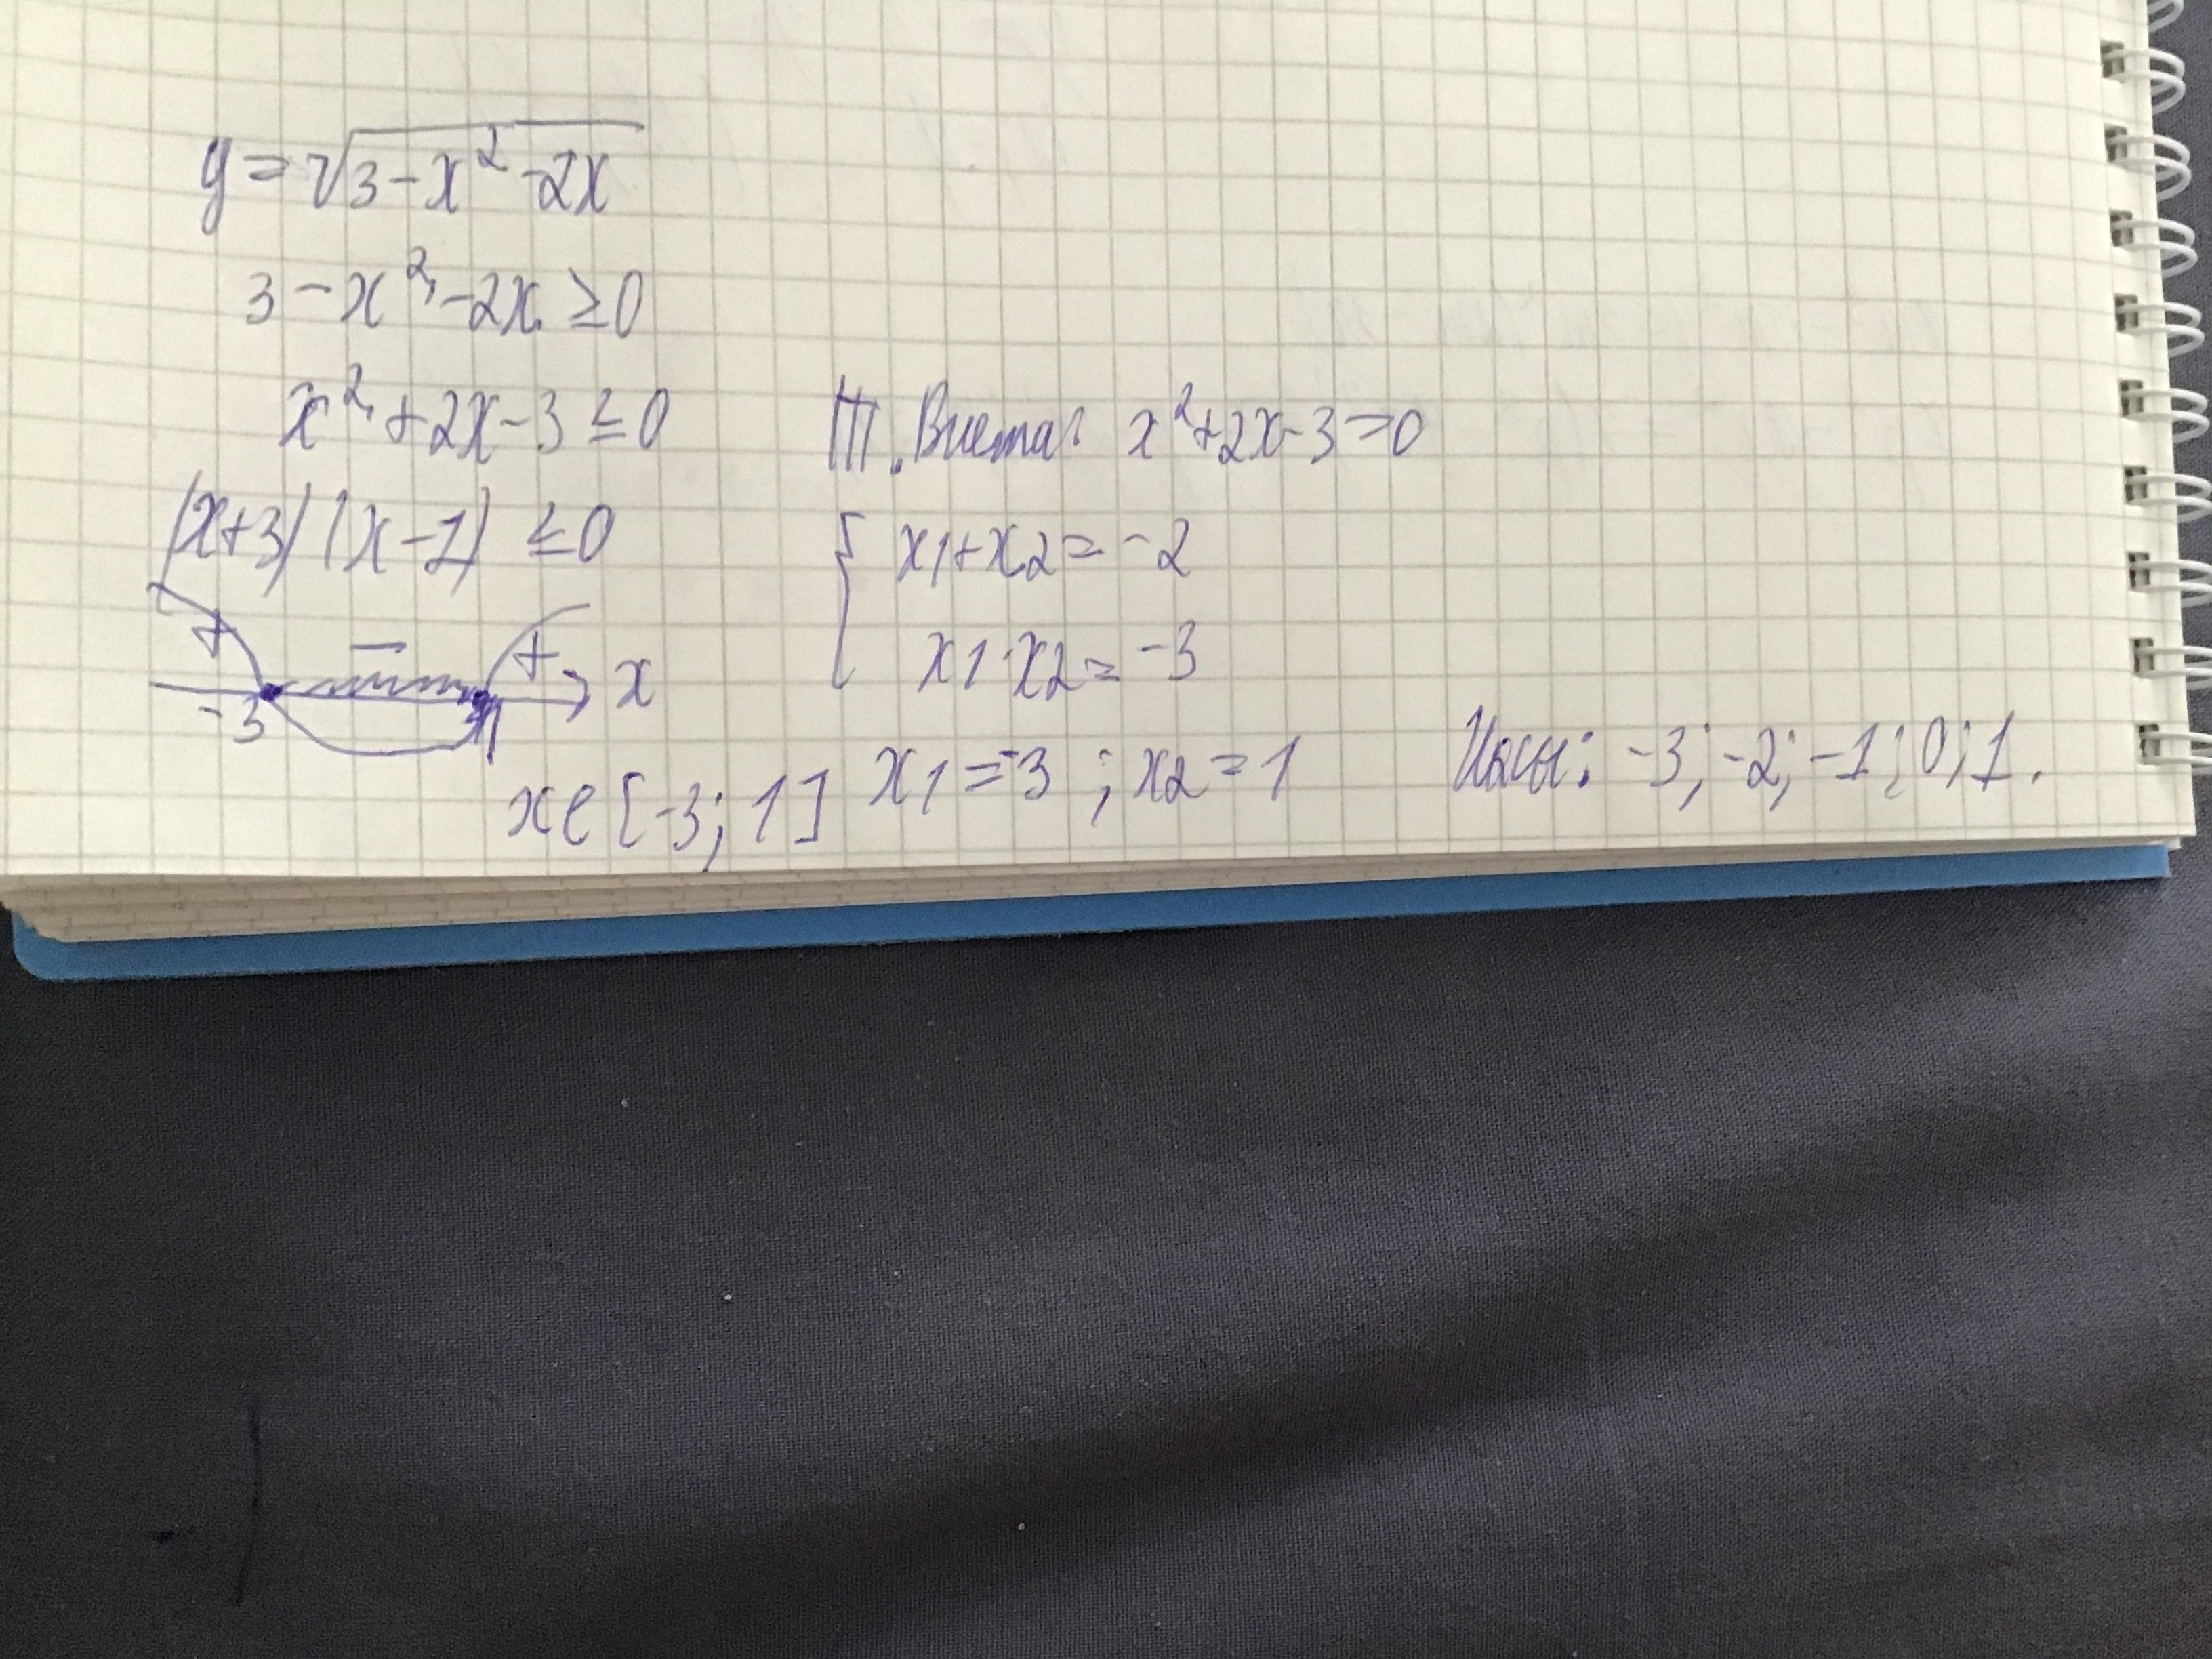 y = √3 - x² - 2x
3 - x² - 2x ≥ 0
x² + 2x - 3 ≤ 0
(x+3) (x-1) ≤ 0
+ − + x
-3 1
x ∈ [-3; 1]
Т. Виета: x² + 2x - 3 = 0
{ x1 + x2 = -2
x1 · x2 = -3
x1 = -3 ; x2 = 1
-3; -2; -1; 0; 1.